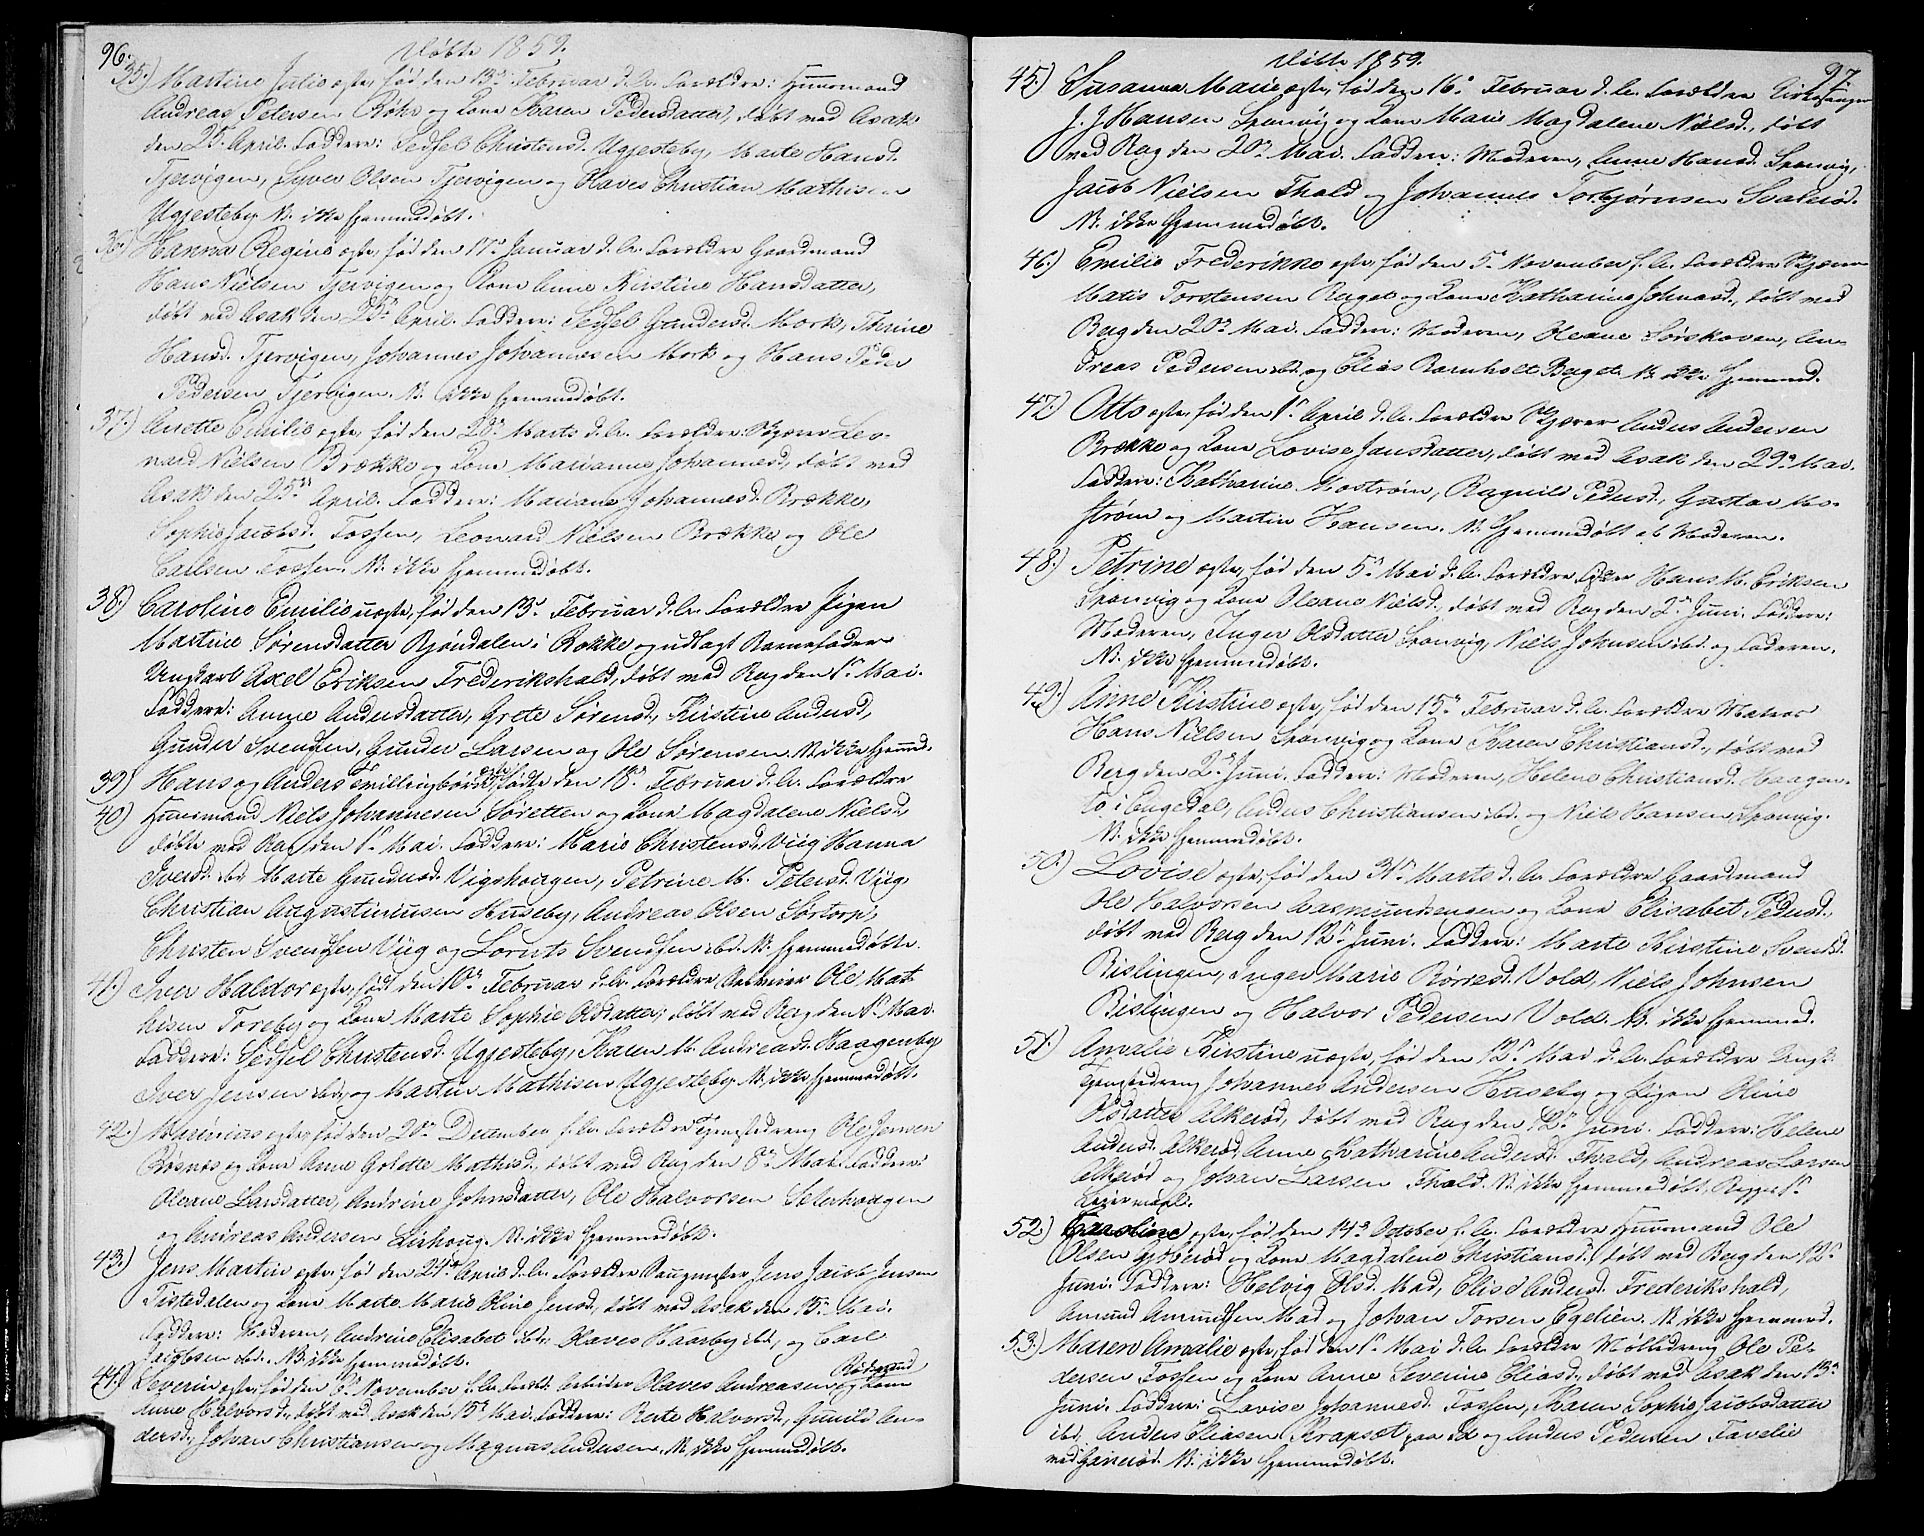 96.
Døbte 1859.
35.) Martine Julie ægte, født den 13de Februar d. A. Forældre: Huusmand
Andreas Petersen Røkr og Kone Karen Pedersdatter, døbt ved Asak
den 25de April. Faddere: Sidsel Christensd. Ugjesteby, Marte Hansd.
Tjervigen, Syver Olsen Tjervigen og Olaves Christian Mathisen
Ugjesteby. N. ikke hjemmedøbt.
36.) Hanna Regine ægte, født den 17de Januar d. A. Forældre Gaardmand
Hans Nielsen Tjervigen og Kone Anne Kirstine Hansdatter,
døbt ved Asak den 25de April. Faddere: Sidsel Gundersd. Mork, Thrine
Hansd. Tjervigen, Johannes Johannesen Mork og Hans Peder
Pedersen Tjervigen. N. ikke hjemmedøbt.
37.) Anette Emilie ægte, født den 20de Marts d. A. Forældre: Skjærer Leo-
nard Nielsen Brække og Kone Marianne Johannesd., døbt ved
Asak den 25de April. Faddere: Mariane Johannesd. Brække,
Sophie Jacobsd. Fossen, Leonard Nielsen Brække og Ole
Carlsen Fossen. N. ikke hjemmedøbt.
38.) Caroline Emilie uægte, født den 13de Februar d. A. Forældre Pigen
Martine Sørensdatter Bjøndalen i Rokke og udlagt Barnefader
Ungkarl Axel Eriksen Frederikshald, døbt ved Berg den 1ste Mai.
Faddere: Anne Andersdatter, Grete Sørensd., Kirstine Andersd.,
Gunder Svendsen, Gunder Larsen og Ole Sørensen. N. ikke hjemmd.
39.) Hans og Anders Tvillingbørn ægte, fødte den 18de Februar d. A. Forældre
40.) Huusmand Niels Johannesen Søretten og Kone Magdalene Nielsd.,
døbte ved Berg den 1ste Mai. Faddere: Marie Christensd. Viig, Hanna
Iversd. ibd. Marte Gundersd. Vigshougen, Petrine M. Petersd. Viig,
Christian Augustiniusen Huseby, Andreas Olsen Sørtorp,
Christen Svendsen Viig og Lorents Svendsen ibd. N. hjemmedøbte.
41.) Iver Haldor ægte, født den 10de Februar d. A. Forældre Ole Mat-
hisen Toreby og Kone Marte Sophie Olsdatter, døbt ved Berg den 1ste Mai.
Faddere: Sidsel Christensd. Ugjesteby, Karen M. Andreasd. Haagenby
Iver Jensen ibd. og Martin Mathisen Ugjesteby. N. ikke hjemmedøbt.
42.) Marinius ægte, født den 20de December f. A. Forældre Tjenestedreng Ole Jensen
Bøsnes og Kone Anne Golette Mathisd., døbt ved Berg den 8de Mai. Faddere:
Oleane Larsdatter, Andrine Johnsdatter, Ole Halvorsen Seterhougen
og Andreas Andersen Lirhoug. N. ikke hjemmedøbt.
43.) Jens Martin ægte, født den 21de April d. A. Forældre Saugmester Jens Jacob Jensen
Tistedalen og Kone Marte Marie Oline Jensd., døbt ved Asak den 15de Mai.
Faddere: Moderen, Andrine Elisabet ibd., Olaves Haarby ibd., og Carl
Jacobsen ibd. N. ikke hjemmedøbt.
44.) Severin ægte, født den 6te November f. A. Foræld. Arbeider Olaves Andreasen Rødsund og Kone
Anne Halvorsd., døbt ved Asak den 15de Mai. Faddere: Berte Halvorsd., Gunild An-
dersd., Johan Christiansen og Magnus Andersen. N. ikke hjemmedøbt.
97.
Døbte 1859.
45.) Susanna Marie ægte, født den 16de Februar d. A. Forældre Kirkesanger
J. J. Hansen Sponvig og Kone Marie Magdalene Nielsd., døbt
ved Berg den 20de Mai. Faddere: Moderen, Anne Hansd. Sponvig,
Jacob Nielsen Fhald og Johannes Torbjørnsen Svalerød.
N. ikke hjemmedøbt.
46.) Emilie Frederikke ægte, født den 5te November f. A. Forældre Skjærer
Matis Torstensen Berget og Kone Katharine Johnasd., døbt ved
Berg den 20de Mai. Faddere: Moderen, Oleane Sørskoven, An-
dreas Pedersen ibd. og Elias Barnholt Berget. N. ikke hjemmd.
47.) Otto ægte, født den 1ste April d. A. Forældre Skjærer Anders Andersen
Brække og Kone Lovise Jansdatter, døbt ved Asak den 29de Mai.
Faddere: Katharine Mostrøm, Ragnild Pedersd., Gustav Mo-
strøm og Martin Hansen. N. hjemmedøbt af Moderen.
48.) Petrine ægte, født den 5te Mai d. A. Forældre Hans M. Eriksen
Sponvig og Kone Oleane Nielsd., døbt ved Berg den 2den Juni. Faddere:
Moderen, Inger Olsdatter Sponvig, Niels Johnsen ibd. og Faderen.
N. ikke hjemmedøbt.
49.) Anne Kirstine ægte, født den 15de Februar d. A. Forældre Matros
Hans Nielsen Sponvig og Kone Karen Christiansd., døbt ved
Berg den 2den Juni. Faddere: Moderen, Helene Christiansd. Haagen-
to i Engedal, Anders Christiansen ibd. og Niels Hansen Sponvig.
N. ikke hjemmedøbt.
50.) Lovise ægte, født den 31te Marts d. A. Forældre Gaardmand
Ole Halvorsen Aasmundsengen og Kone Elisabet Pedersd.,
døbt ved Berg den 12te Juni. Faddere: Marte Kirstine Svendsd.
Bislingen, Inger Marie Børresd. Vold, Niels Johnsen
Bislingen og Halvor Pedersen Vold. N. ikke hjemmd.
51.) Amalie Kirstine uægte, født den 12te Mai d. A. Forældre Ungk.
Tjenestedreng Johannes Andersen Huseby og Pigen Oline
Olsdatter Alkerød, døbt ved Berg den 12te Juni. Faddere: Helene
Andersd. Alkerød, Anne Katharine Andersd. Fhald, Andreas Larsen
Alkerød og Johan Larsen Fhald. N. ikke hjemmedøbt. Begges 1ste
Leiermaal.
52.) Caroline ægte, født den 14de October f. A. Forældre Huusmand Ole
Olsen Gjøkerød og Kone Magdalene Christiansd., døbt ved Berg den 12te
Juni. Faddere: Helvig Olsd. Mad, Elise Andersd. Frederikshald,
Amund Amundsen Mad og Johan Torsen Egelien. N. ikke hjemmed.
53.) Maren Amalie ægte, født den 1ste Mai d. A. Forældre Mølledreng Ole Pe-
dersen Fossen og Kone Anne Severine Eliasd., døbt ved Asak den 13de
Juni. Faddere: Lovise Johannesd. Fossen, Karen Sophie Jacobsdatter
ibd., Anders Eliasen Krapsøt paa Id og Anders Pedersen Favelie
ved N. ikke hjemmedøbt.